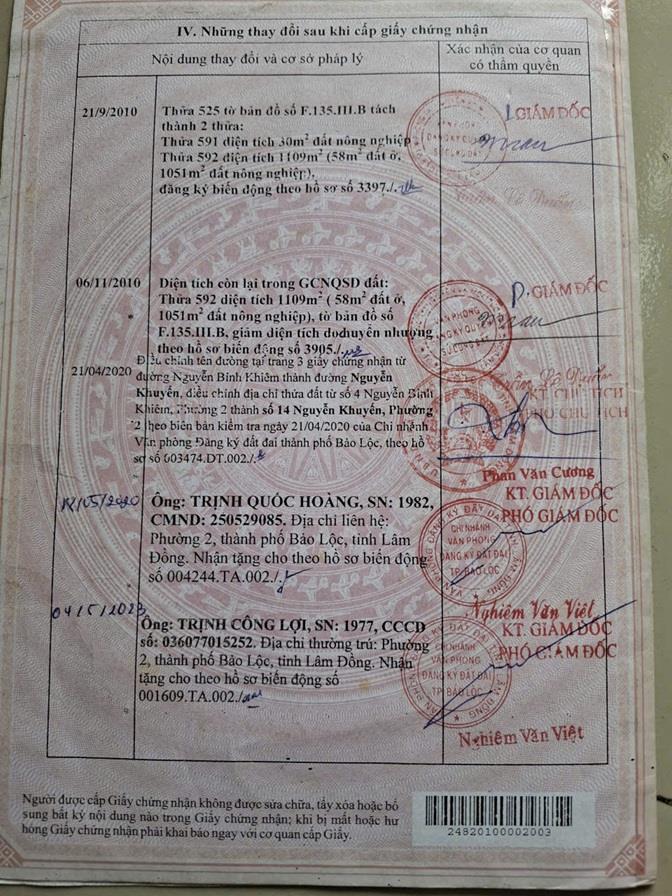 IV. Những thay đổi sau khi cấp giấy chứng nhận
Nội dung thay đổi và cơ sở pháp lý
Xác nhận của cơ quan
có thẩm quyền
21/9/2010
Thửa 525 tờ bản đồ số F.135.III.B tách
thành 2 thửa:
Thửa 591 diện tích 30m² đất nông nghiệp
Thửa 592 diện tích 1109m² (58m² đất ở,
1051m² đất nông nghiệp),
đăng ký biến động theo hồ sơ số 3397./.
GIÁM ĐỐC
06/11/2010
Diện tích còn lại trong GCNQSD đất:
Thửa 592 diện tích 1109m² ( 58m² đất ở,
1051m² đất nông nghiệp), tờ bản đồ số
F.135.III.B, giảm diện tích do chuyển nhượng
theo hồ sơ biến động số 3905./.
P. GIÁM ĐỐC
21/04/2020
Điều chỉnh tên đường tại trang 3 giấy chứng nhận từ
đường Nguyễn Bỉnh Khiêm thành đường Nguyễn
Khuyến, điều chỉnh địa chỉ thửa đất từ số 4 Nguyễn Bỉnh
Khiêm, Phường 2 thành số 14 Nguyễn Khuyến, Phường
2 theo biên bản kiểm tra ngày 21/04/2020 của Chi nhánh
Văn phòng Đăng ký đất đai thành phố Bảo Lộc, theo hồ
sơ số 603474.DT.002./.
KT. CHỦ TỊCH
PHÓ CHỦ TỊCH
Phan Văn Cương
12/05/2020
Ông: TRỊNH QUỐC HOÀNG, SN: 1982,
CMND: 250529085. Địa chỉ liên hệ:
Phường 2, thành phố Bảo Lộc, tỉnh Lâm
Đồng. Nhận tặng cho theo hồ sơ biến động
số 004244.TA.002./.
KT. GIÁM ĐỐC
PHÓ GIÁM ĐỐC
CHI NHÁNH
VĂN PHÒNG
ĐĂNG KÝ ĐẤT ĐAI
TP BẢO LỘC
Nghiêm Văn Việt
04/5/2023
Ông: TRỊNH CÔNG LỢI, SN: 1977, CCCD
số: 036077015252. Địa chỉ thường trú: Phường
2, thành phố Bảo Lộc, tỉnh Lâm Đồng. Nhận
tặng cho theo hồ sơ biến động số
001609.TA.002./.
KT. GIÁM ĐỐC
PHÓ GIÁM ĐỐC
CHI NHÁNH
VĂN PHÒNG
ĐĂNG KÝ ĐẤT ĐAI
TP BẢO LỘC
Nghiêm Văn Việt
Người được cấp Giấy chứng nhận không được sửa chữa, tẩy xóa hoặc bổ
sung bất kỳ nội dung nào trong Giấy chứng nhận; khi bị mất hoặc hư
hỏng Giấy chứng nhận phải khai báo ngay với cơ quan cấp Giấy.
24820100002003